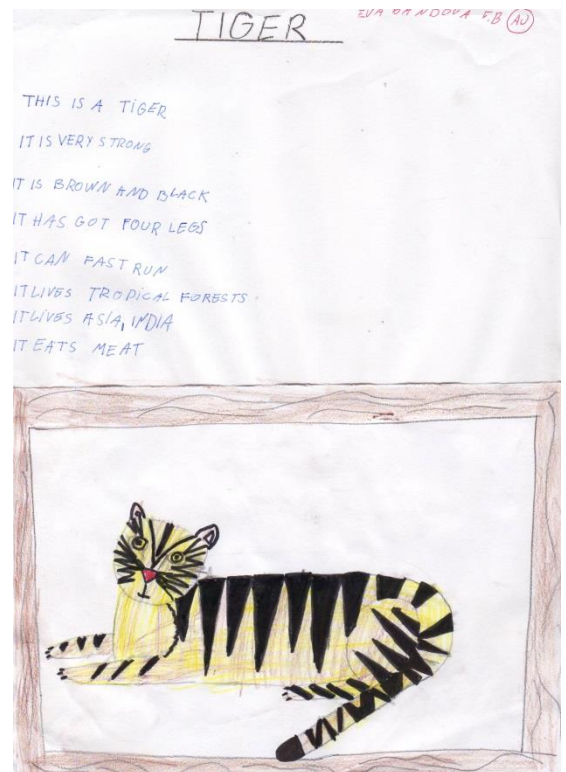 TIGER
THIS IS A TIGER
IT IS VERY STRONG
IT IS BROWN AND BLACK
IT HAS GOT FOUR LEGS
IT CAN FAST RUN
IT LIVES TROPICAL FORESTS
IT LIVES ASIA, INDIA
IT EATS MEAT